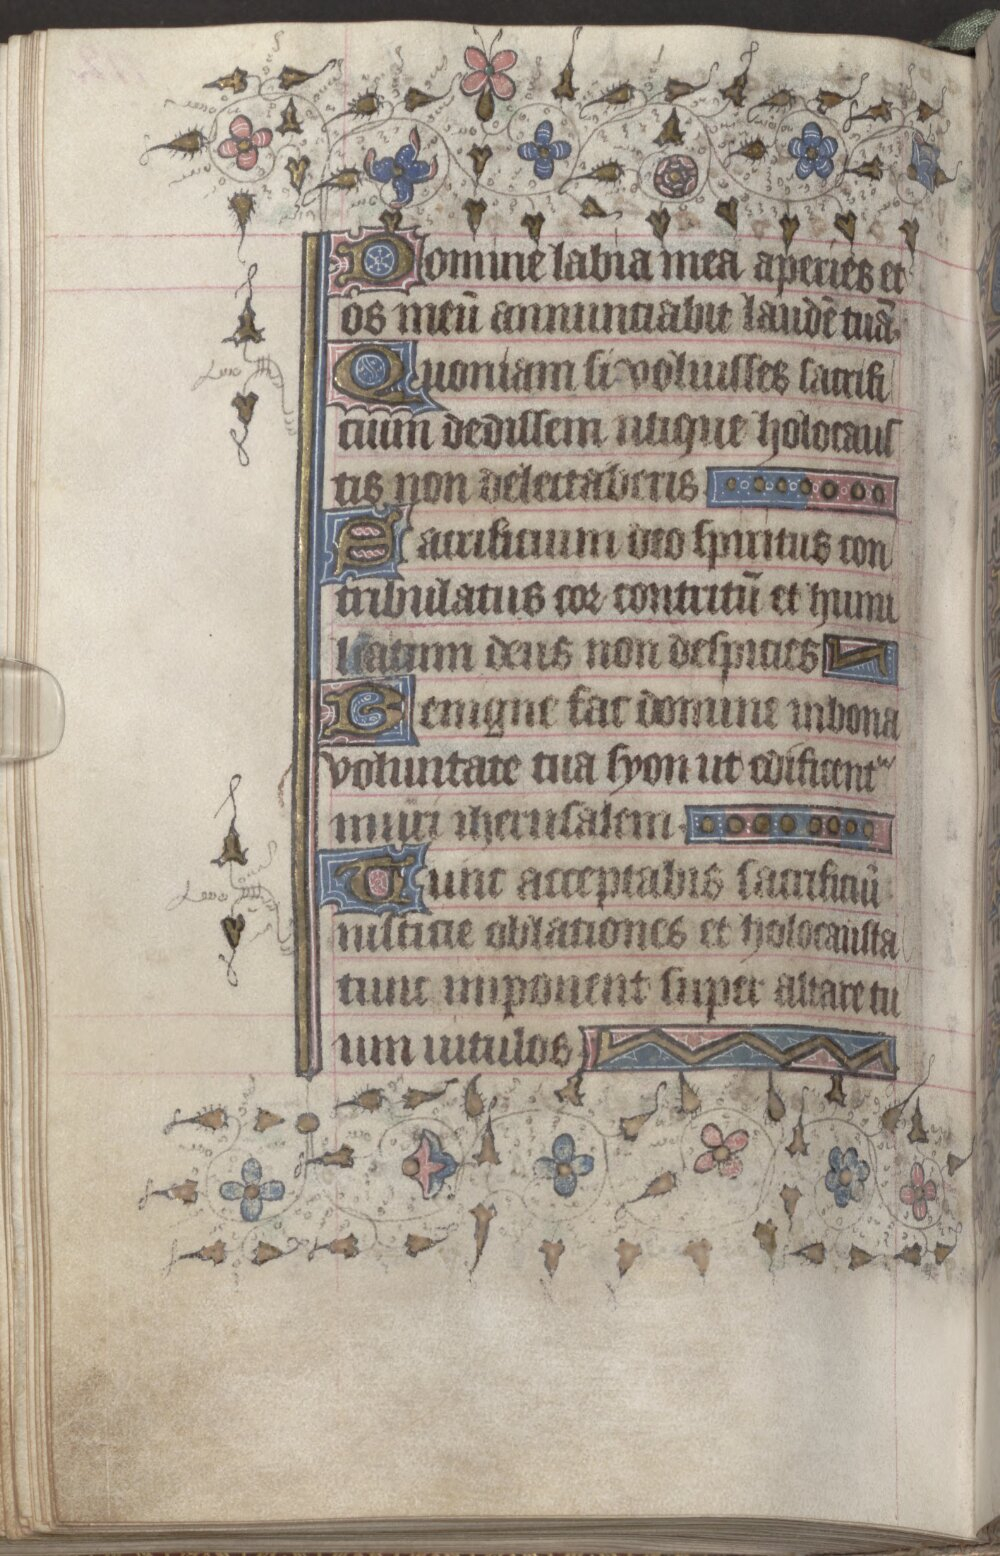 Domine labia mea aperies et
os meū annunciabit laudē tuā.
Quoniam si voluisses sacrifi
cium dedissem utique holocaus
tis non delectaberis
Sacrificium deo spiritus con
tribulatus cor contritū et humi
liatum deus non despicies
Benigne fac domine in bona
voluntate tua syon ut edificentur
muri iherusalem.
Tunc acceptabis sacrificiū
iusticie oblationes et holocausta
tunc imponent super altare tu
um vitulos